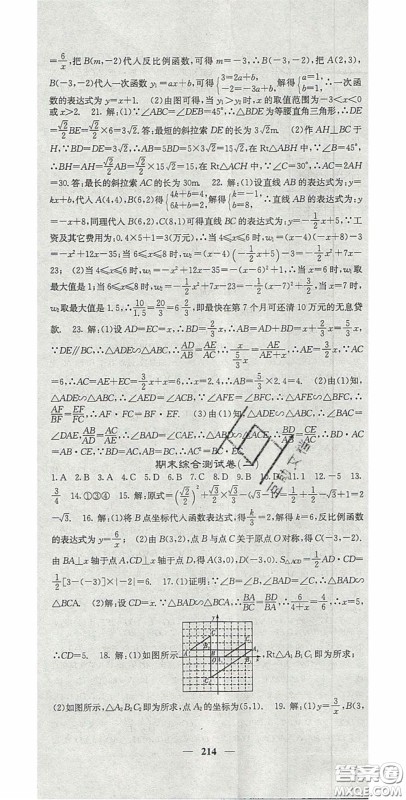 =6/x,把B(m,-2)代人反比例函数,可得m=-3,∴B(-3,-2),把A(2,3),
B(-3,-2)代人一次函数y₁=ax+b,可得{3=2a+b, -2=-3a+b,解得{a=1, b=1,∴一次函
数的表达式为y=x+1. (2)由图可得,当y₁>y₂时,x的取值范围为-3<x<0
或x>2. 21.解:(1)∵∠ABC=∠DEB=45°,∴△BDE为等腰直角三角形,∴
DE=√2/2BE=√2/2×6=3√2.答:最短的斜拉索DE的长为3√2m. (2)作AH⊥BC于
H,∵BD=DE=3√2,∴AB=5BD=5×3√2=15√2,在Rt△ABH中,∵∠B=45°,
∴BH=AH=√2/2AB=√2/2×15√2=15,在Rt△ACH中,∵∠C=30°,∴AC=2AH
=30.答:最长的斜拉索AC的长为30m. 22.解:(1)设直线AB的表达式为:y=
kx+b,代人A(4,4),B(6,2)得{4k+b=4, 6k+b=2,解得{k=-1, b=8,∴直线AB的表达式为:y
=-x+8,同理代人B(6,2),C(8,1)可得直线BC的表达式为:y=-1/2x+5,∵工
资及其它费用为:0.4×5+1=3(万元),∴当4≤x≤6时,w₁=(x-4)(-x+8)-3
=-x²+12x-35;当6≤x≤8时,w₂=(x-4)(-1/2x+5)-3=-1/2x²+7x-
23; (2)当4≤x≤6时,w₁=-x²+12x-35=-(x-6)²+1,∴当x=6时,w₁取
最大值是1;当6≤x≤8时,w₂=-1/2x²+7x-23=-1/2(x-7)²+3/2,当x=7时,
w₂取最大值是1.5,∴10/1.5=20/3=6 2/3,即最快在第7个月可还清10万元的无息贷
款. 23.解:(1)设AD=EC=x,∴BD=2/3x,∴AB=AD+BD=x+2/3x=5/3x,
∵DE∥BC,∴△ADE∽△ABC,∴AD/AB=AE/AC,∴x/(5/3x)=AE/(AE+x),∴AE=3/2x,∵AC
=6,∴AC=AE+EC=3/2x+x=6,∴x=2.4,∴AB=5/3×2.4=4. (2)由(1)知,
△ADE∽△ABC,∴AD/AB=AE/AC,∵EF∥AB,∴△CEF∽△CAB,
AF/BF=EF/CF,∴AF·CF=BF·EF. (3)由(1)知,△ADE∽△ABC,
DE,AB/AD=AC/AE,∴AB/AC=AD/AE,∴△ABD∽△ACE,
∴BD·AC=AB·CE,∵AB=AC,∴AC²=BC·EC.
期末综合测试卷(一)
1.A 2.B 3.A 4.B 5.B 6.B 7.D 8.D 9.B 10.D 11.1 12.-5 13.
3/4 14.①③④ 15.解:原式=(√2/2)²+√3/2-√3×√3+1=1/2+√3/2-3+1=
2-√3. 16.(1)将B点坐标代人函数表达式,得k/3=2,解得k=6,反比例函数
的表达式为y=6/x; (2)由B(3,2),点B与点C关于原点O对称,得C(-3,-2).
由BA⊥x轴于点A,CD⊥x轴于点D,得A(3,0),D(-3,0).S△ACD=1/2AD·CD=
1/2[3-(-3)]×|-2|=6. 17.(1)证明:∵∠B=∠B,∠BAD=∠C,∴△BAD∽
△BCA. (2)解:设CD=x.∵△BAD∽△BCA,∴BA/BC=BD/BA,∴6/(4+x)=4/6,∴x=5,
∴CD=5. 18.解:(1)如图所示,
,Rt△A₁B₁C₁即为所求;
(2)如图所示,△A₂B₂C₂即为所求,点A₂的坐标为(5,1). 19.解:(1)y=3/x,B(3,
214
答案圈
MXQE.COM